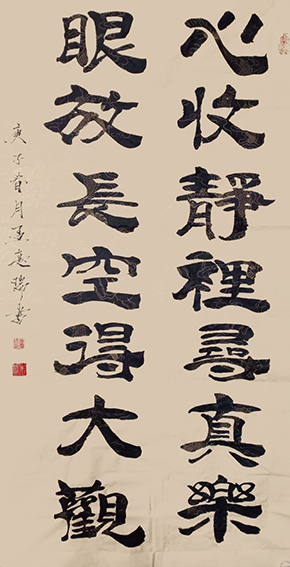 心收靜裡尋真樂
眼放長空得大觀
庚子春月